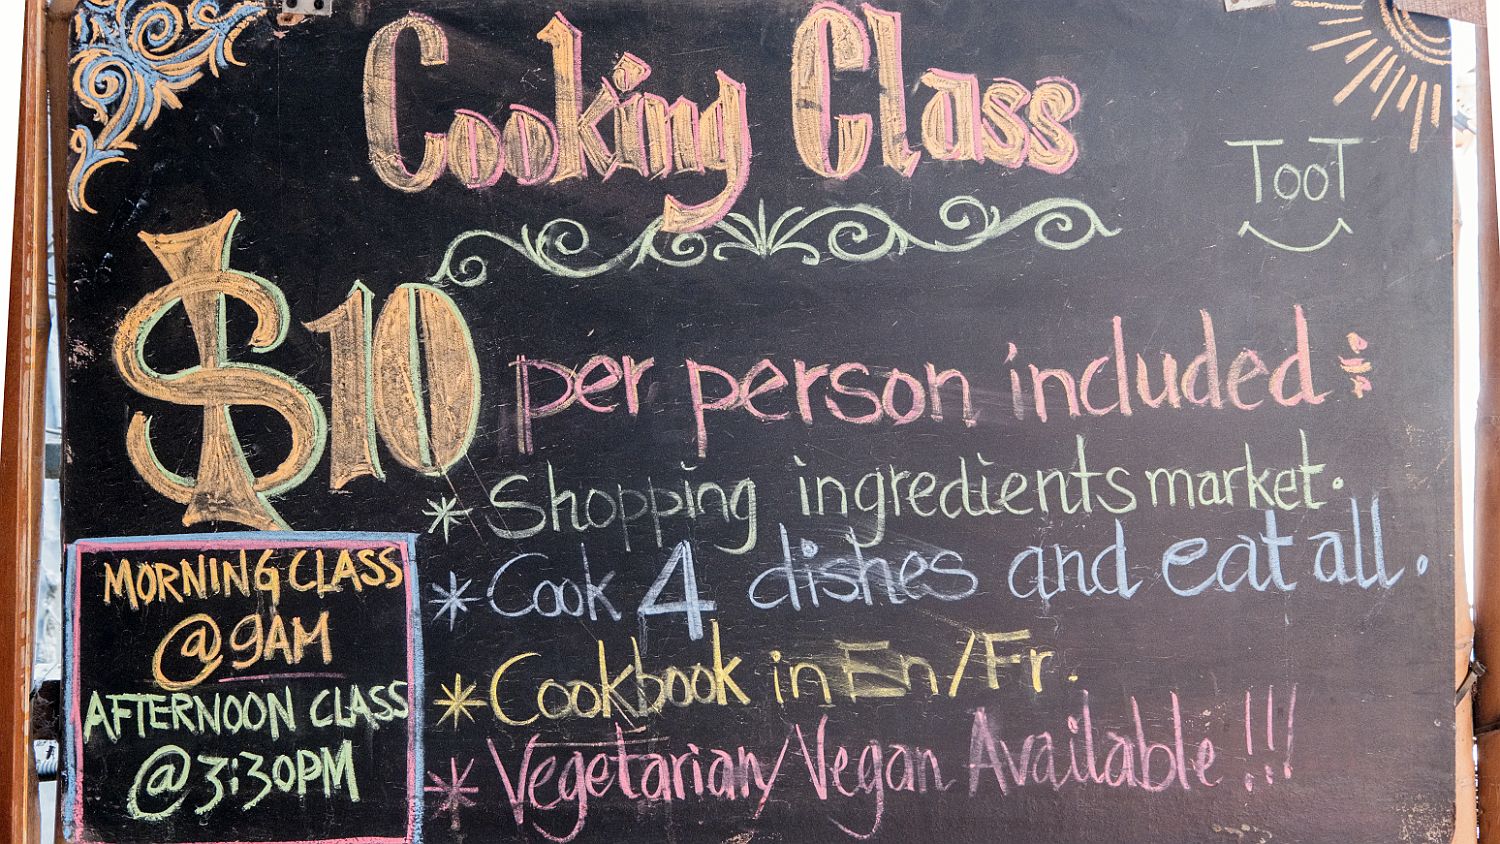 Cooking Class
TOOT
$10 per person included :
* Shopping ingredients market.
* Cook 4 dishes and eat all.
* Cookbook in En/Fr.
* Vegetarian/Vegan Available !!!
MORNING CLASS
@ 9AM
AFTERNOON CLASS
@ 3:30PM